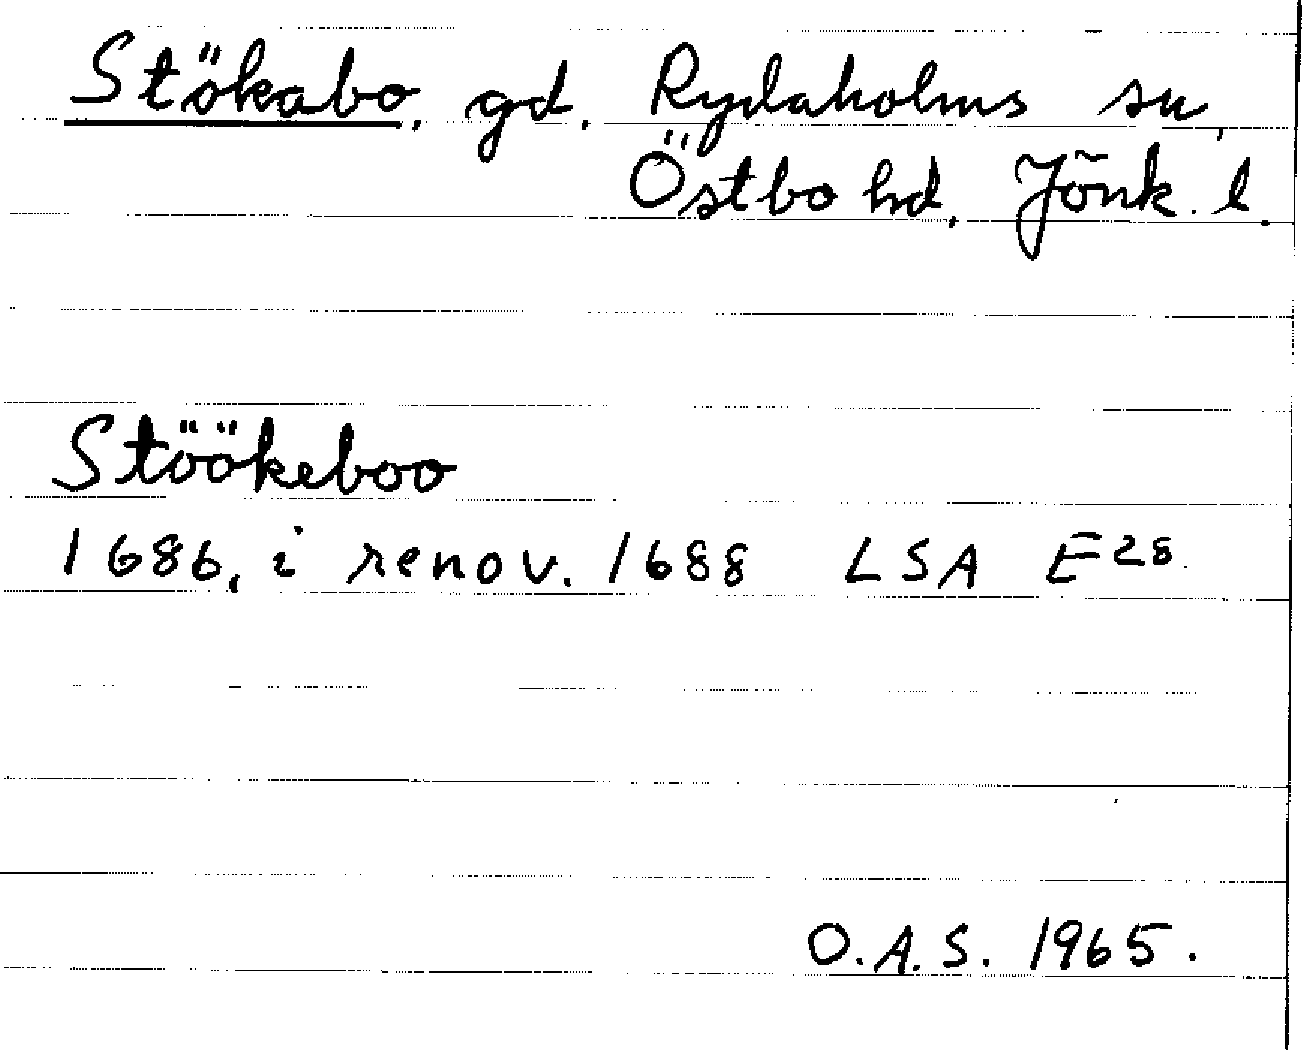 Stökabo, gd. Rydaholms sn,
Östbo hd, Jönk. l.
Stöökeboo
1686, i renov. 1688 LSA E28.
O.A.S. 1965.